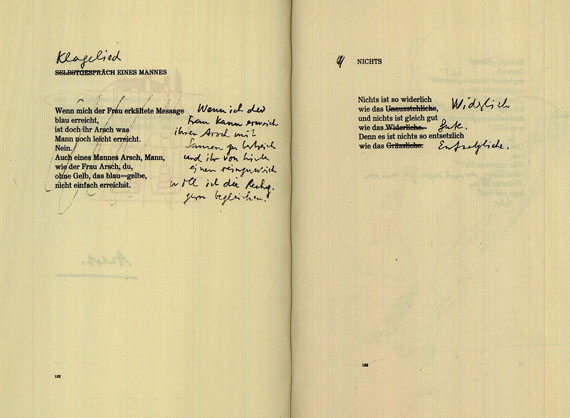 Klagelied
SELBSTGESPRÄCH EINES MANNES
Wenn mich der Frau erkältete Message
blau erreicht,
ist doch ihr Arsch was
Mann noch leicht erreicht.
Nein.
Auch eines Mannes Arsch, Mann,
wie der Frau Arsch, du,
ohne Gelb, das blau=gelbe,
nicht einfach erreichst.
Wenn ich der
Frau kann erweich
ihren Arsch mit
und ihr von hinten
einen
will ich die Rechg.
gern begleichen.
NICHTS
Nichts ist so widerlich
wie das Unausstehliche,
und nichts ist gleich gut
wie das Widerliche.
Denn es ist nichts so entsetzlich
wie das Grässliche.
Widerlich
Gute.
Entsetzliche.